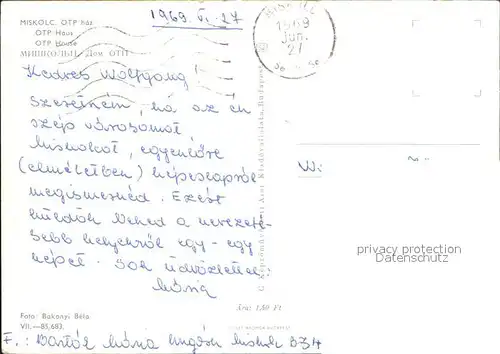 MISKOLC. OTP ház
OTP Haus
OTP House
МИШКОЛЬЦ. Дом ОТП
1969. VI. 27
MISKOLC
1969
Jun.
27
Kedves Wolfgang!
Szeretném, ha az én
szép városomat,
Miskolcot, egyenlőre
(elméletben) képeslapról
megismernéd. Ezért
küldök Neked a nevezete-
sebb helyekről egy-egy
képet. Sok üdvözlettel:
Mária
Képzőművészeti Alap Kiadóvállalata, Budapest
W
privacy protection
Datenschutz
Ára: 1,80 Ft
Foto: Bakonyi Béla
VII.—85,683.
F.: Bartók Mária Miskolc